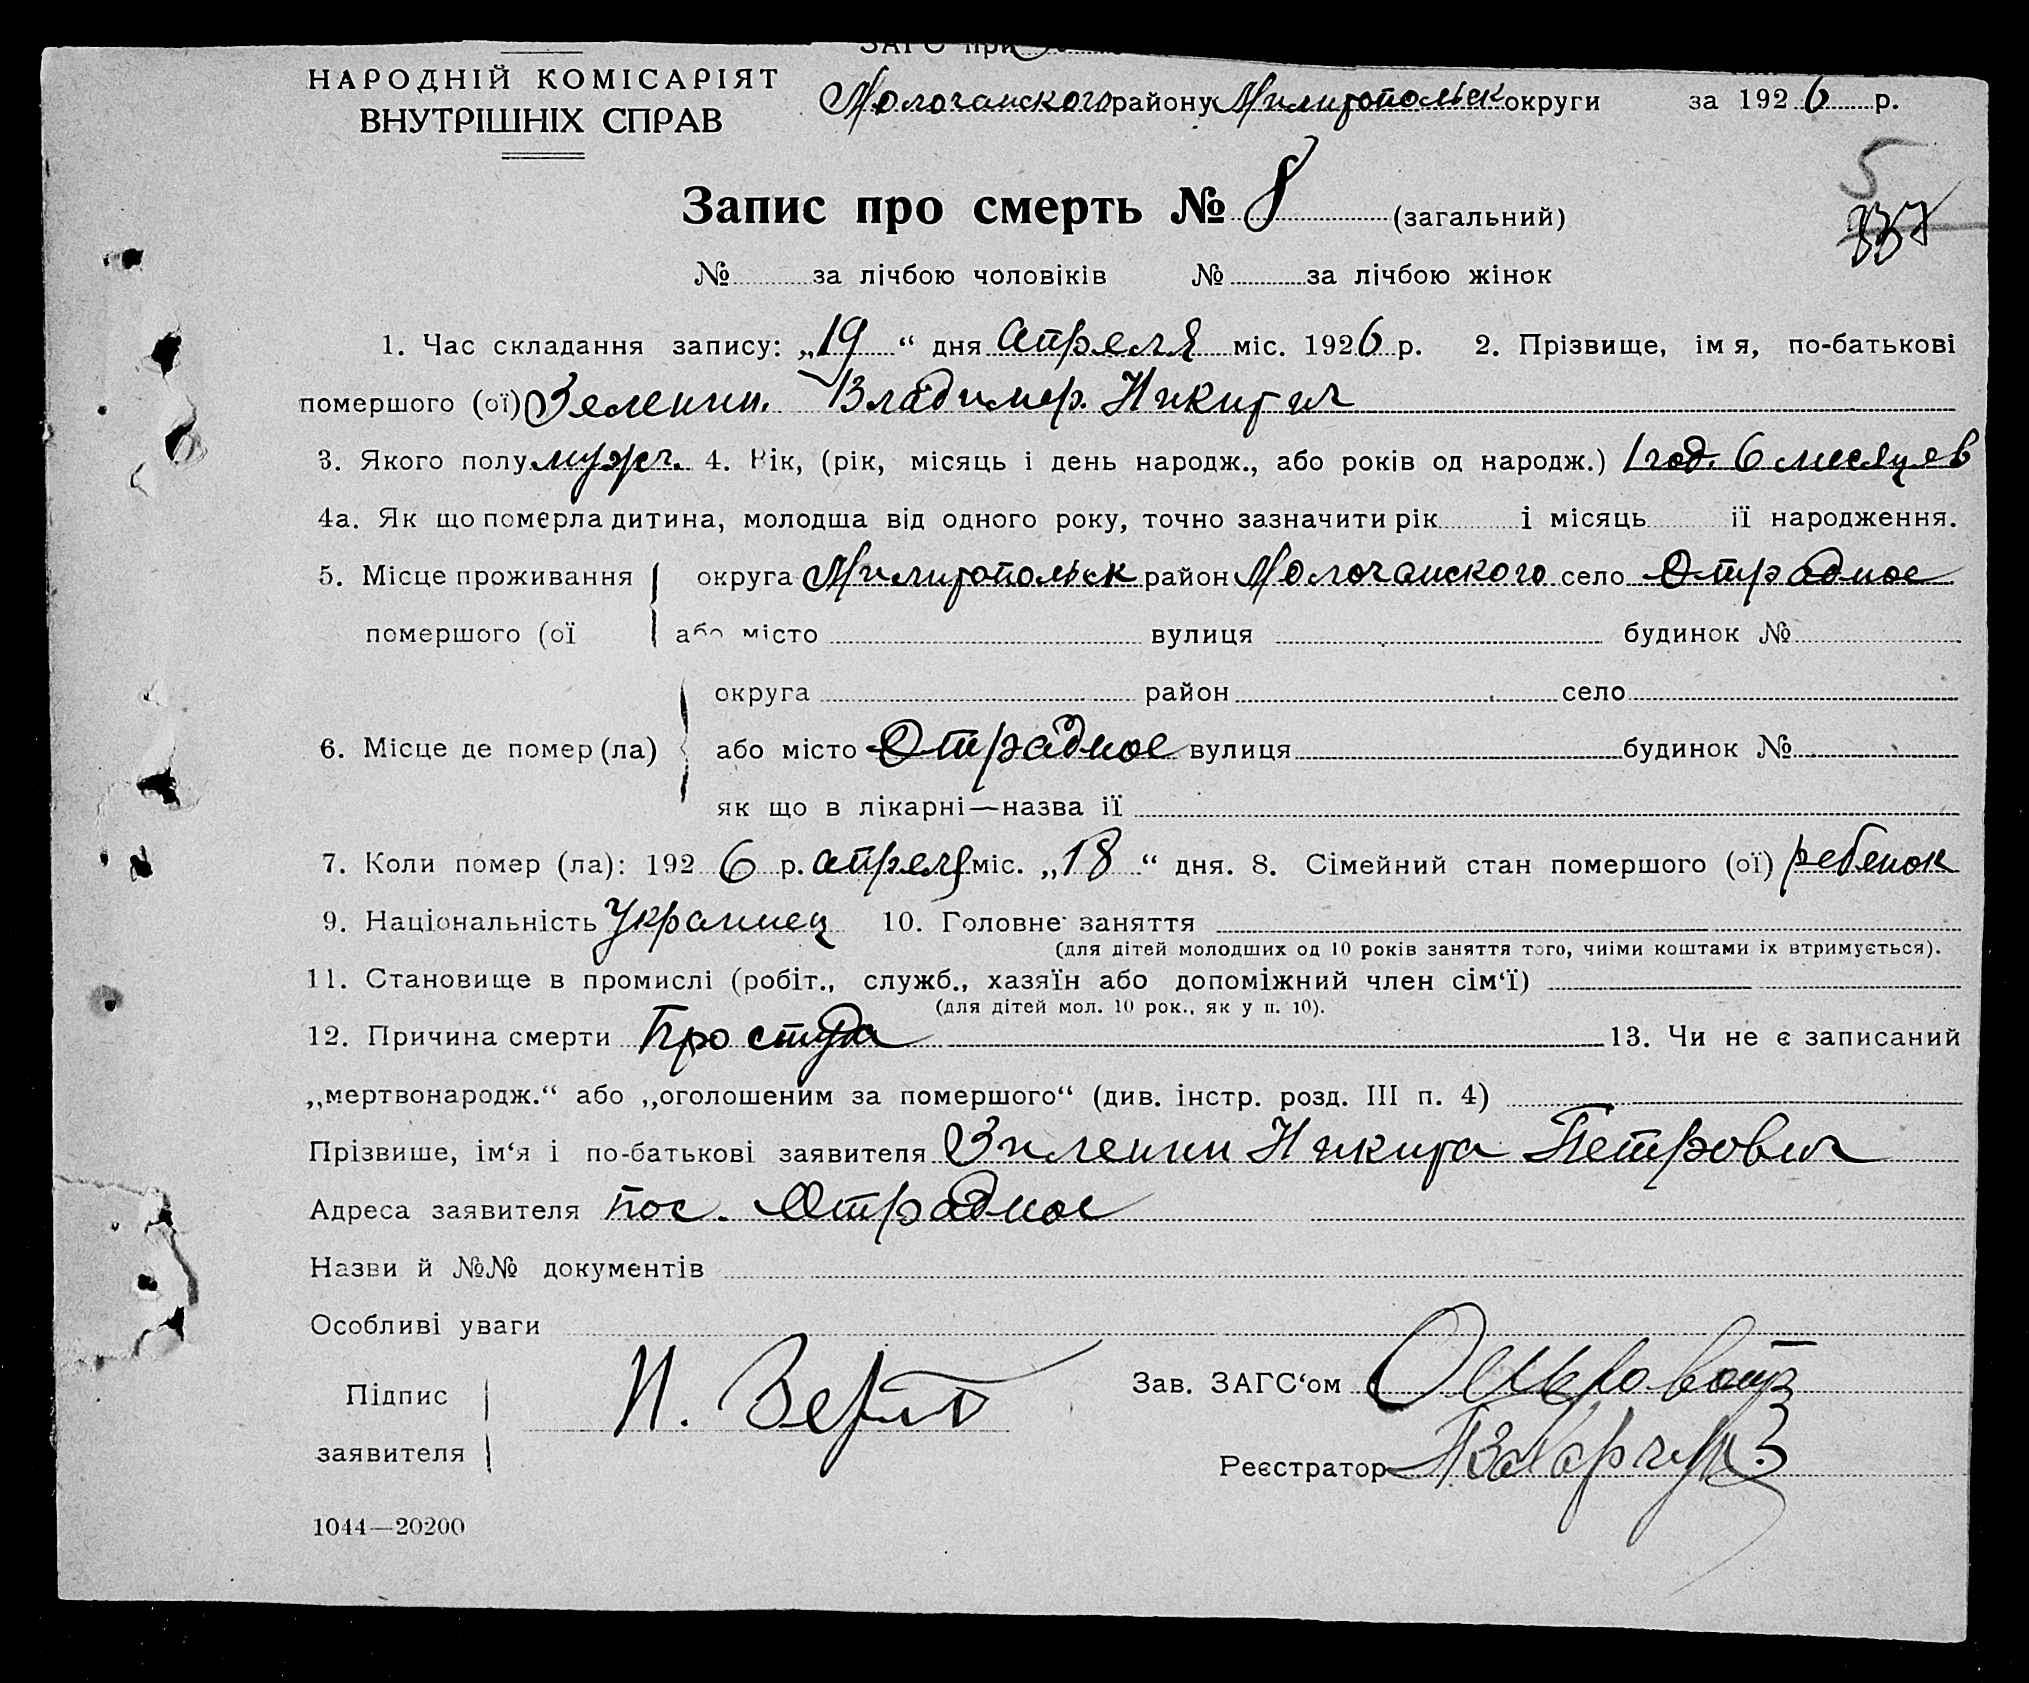 ЗАГС при
НАРОДНІЙ КОМІСАРІЯТ
ВНУТРІШНІХ СПРАВ
Молочанского району Милитопольск округи за 1926 р.
5
Запис про смерть № 8 (загальний)
337
№ за лічбою чоловіків № за лічбою жінок
1. Час складання запису: „19“ дня Апреля міс. 1926 р. 2. Прізвище, імя, по-батькові
помершого (ої) Зеленин. Владимер. Никитич
3. Якого полу мужч. 4. Вік, (рік, місяць і день народж., або років од народж.) 1 год. 6 месяцев
4а. Як що померла дитина, молодша від одного року, точно зазначити рік і місяць її народження.
5. Місце проживання округа Милитопольск район Молочанского село Отрадное
помершого (ої або місто вулиця будинок №
округа район село
6. Місце де помер (ла) або місто Отрадное вулиця будинок №
як що в лікарні—назва її
7. Коли помер (ла): 1926 р. апреля міс. „18“ дня. 8. Сімейний стан помершого (ої) ребенок
9. Національність Украинец 10. Головне заняття
(для дітей молодших од 10 років заняття того, чиїми коштами їх втримується).
11. Становище в промислі (робіт., служб., хазяїн або допоміжний член сім‘ї)
(для дітей мол. 10 рок., як у п. 10).
12. Причина смерти Простуда 13. Чи не є записаний
„мертвонародж.“ або „оголошеним за помершого“ (див. інстр. розд. III п. 4)
Прізвише, ім‘я і по-батькові заявителя Зиленин Никита Петрович
Адреса заявителя пос. Отрадное
Назви й №№ документів
Особливі уваги
Підпис
заявителя
И.
Зав. ЗАГС‘ом
Реєстратор
1044—20200